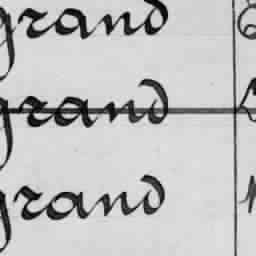 grand
grand
grand